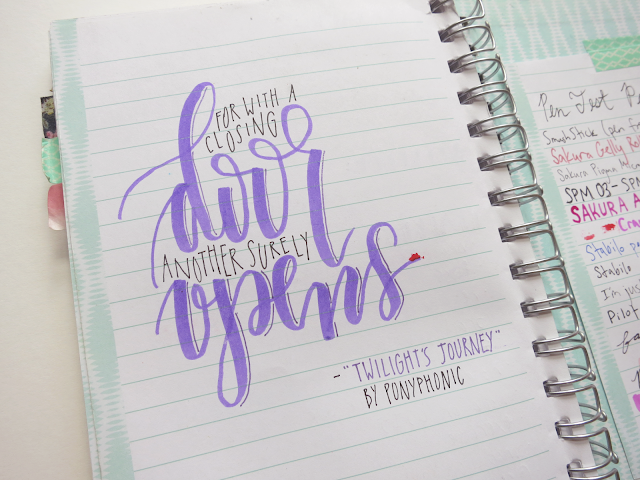 FOR WITH A
CLOSING
door
ANOTHER SURELY
opens
-"TWILIGHT'S JOURNEY"
BY PONYPHONIC
Pen Test
SmashStick (pen
Sakura Gelly
Sakura Pigma
SPM 03-
SAKURA
Stabilo
Stabilo
I'm
Pilot